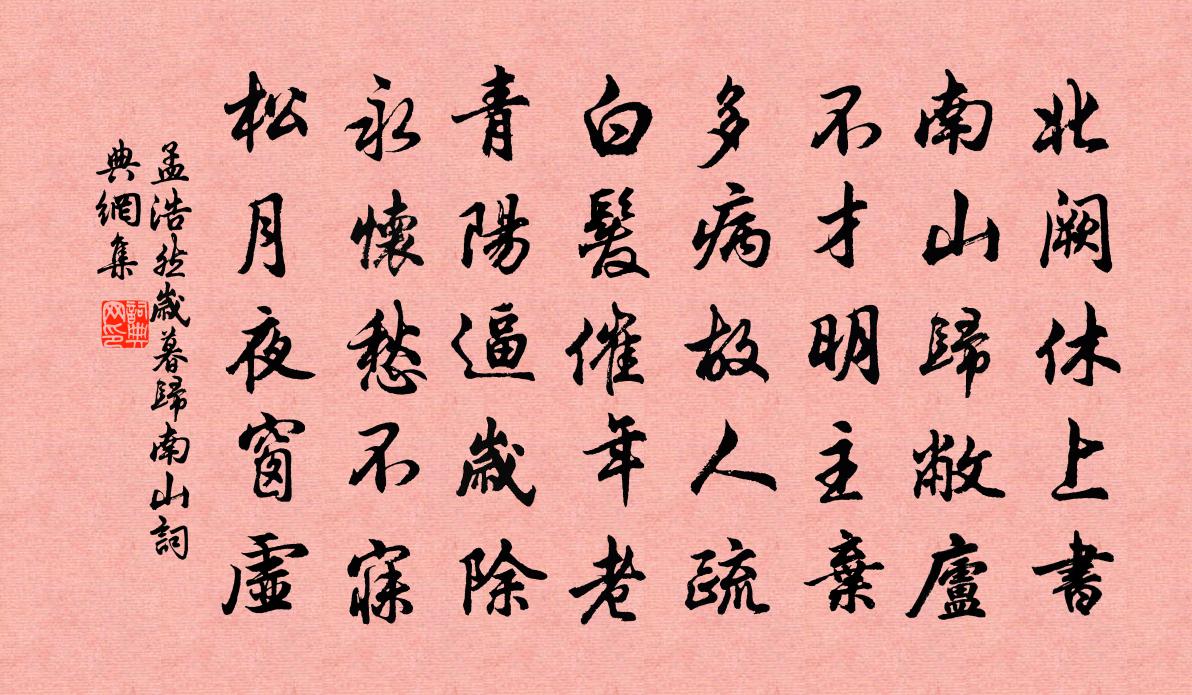 北闕休上書
南山歸敝廬
不才明主棄
多病故人疏
白髮催年老
青陽逼歲除
永懷愁不寐
松月夜窗虛
孟浩然歲暮歸南山詞
典網集
詞典網印